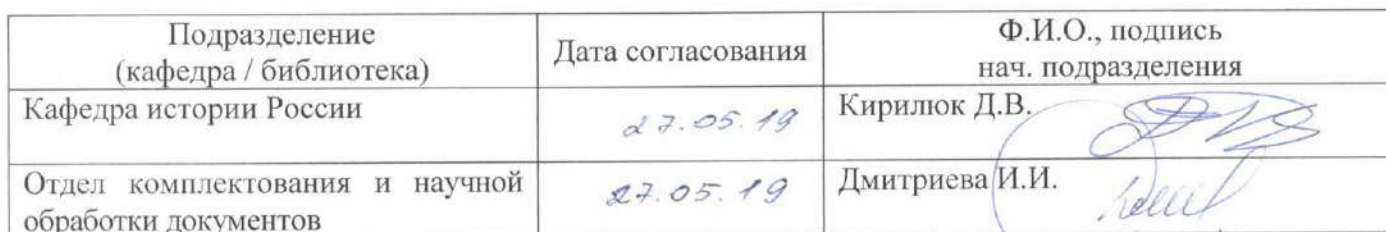 Подразделение
(кафедра / библиотека)
Дата согласования
Ф.И.О., подпись
нач. подразделения
Кафедра истории России
27.05.19
Кирилюк Д.В.
Отдел комплектования и научной
обработки документов
27.05.19
Дмитриева И.И.